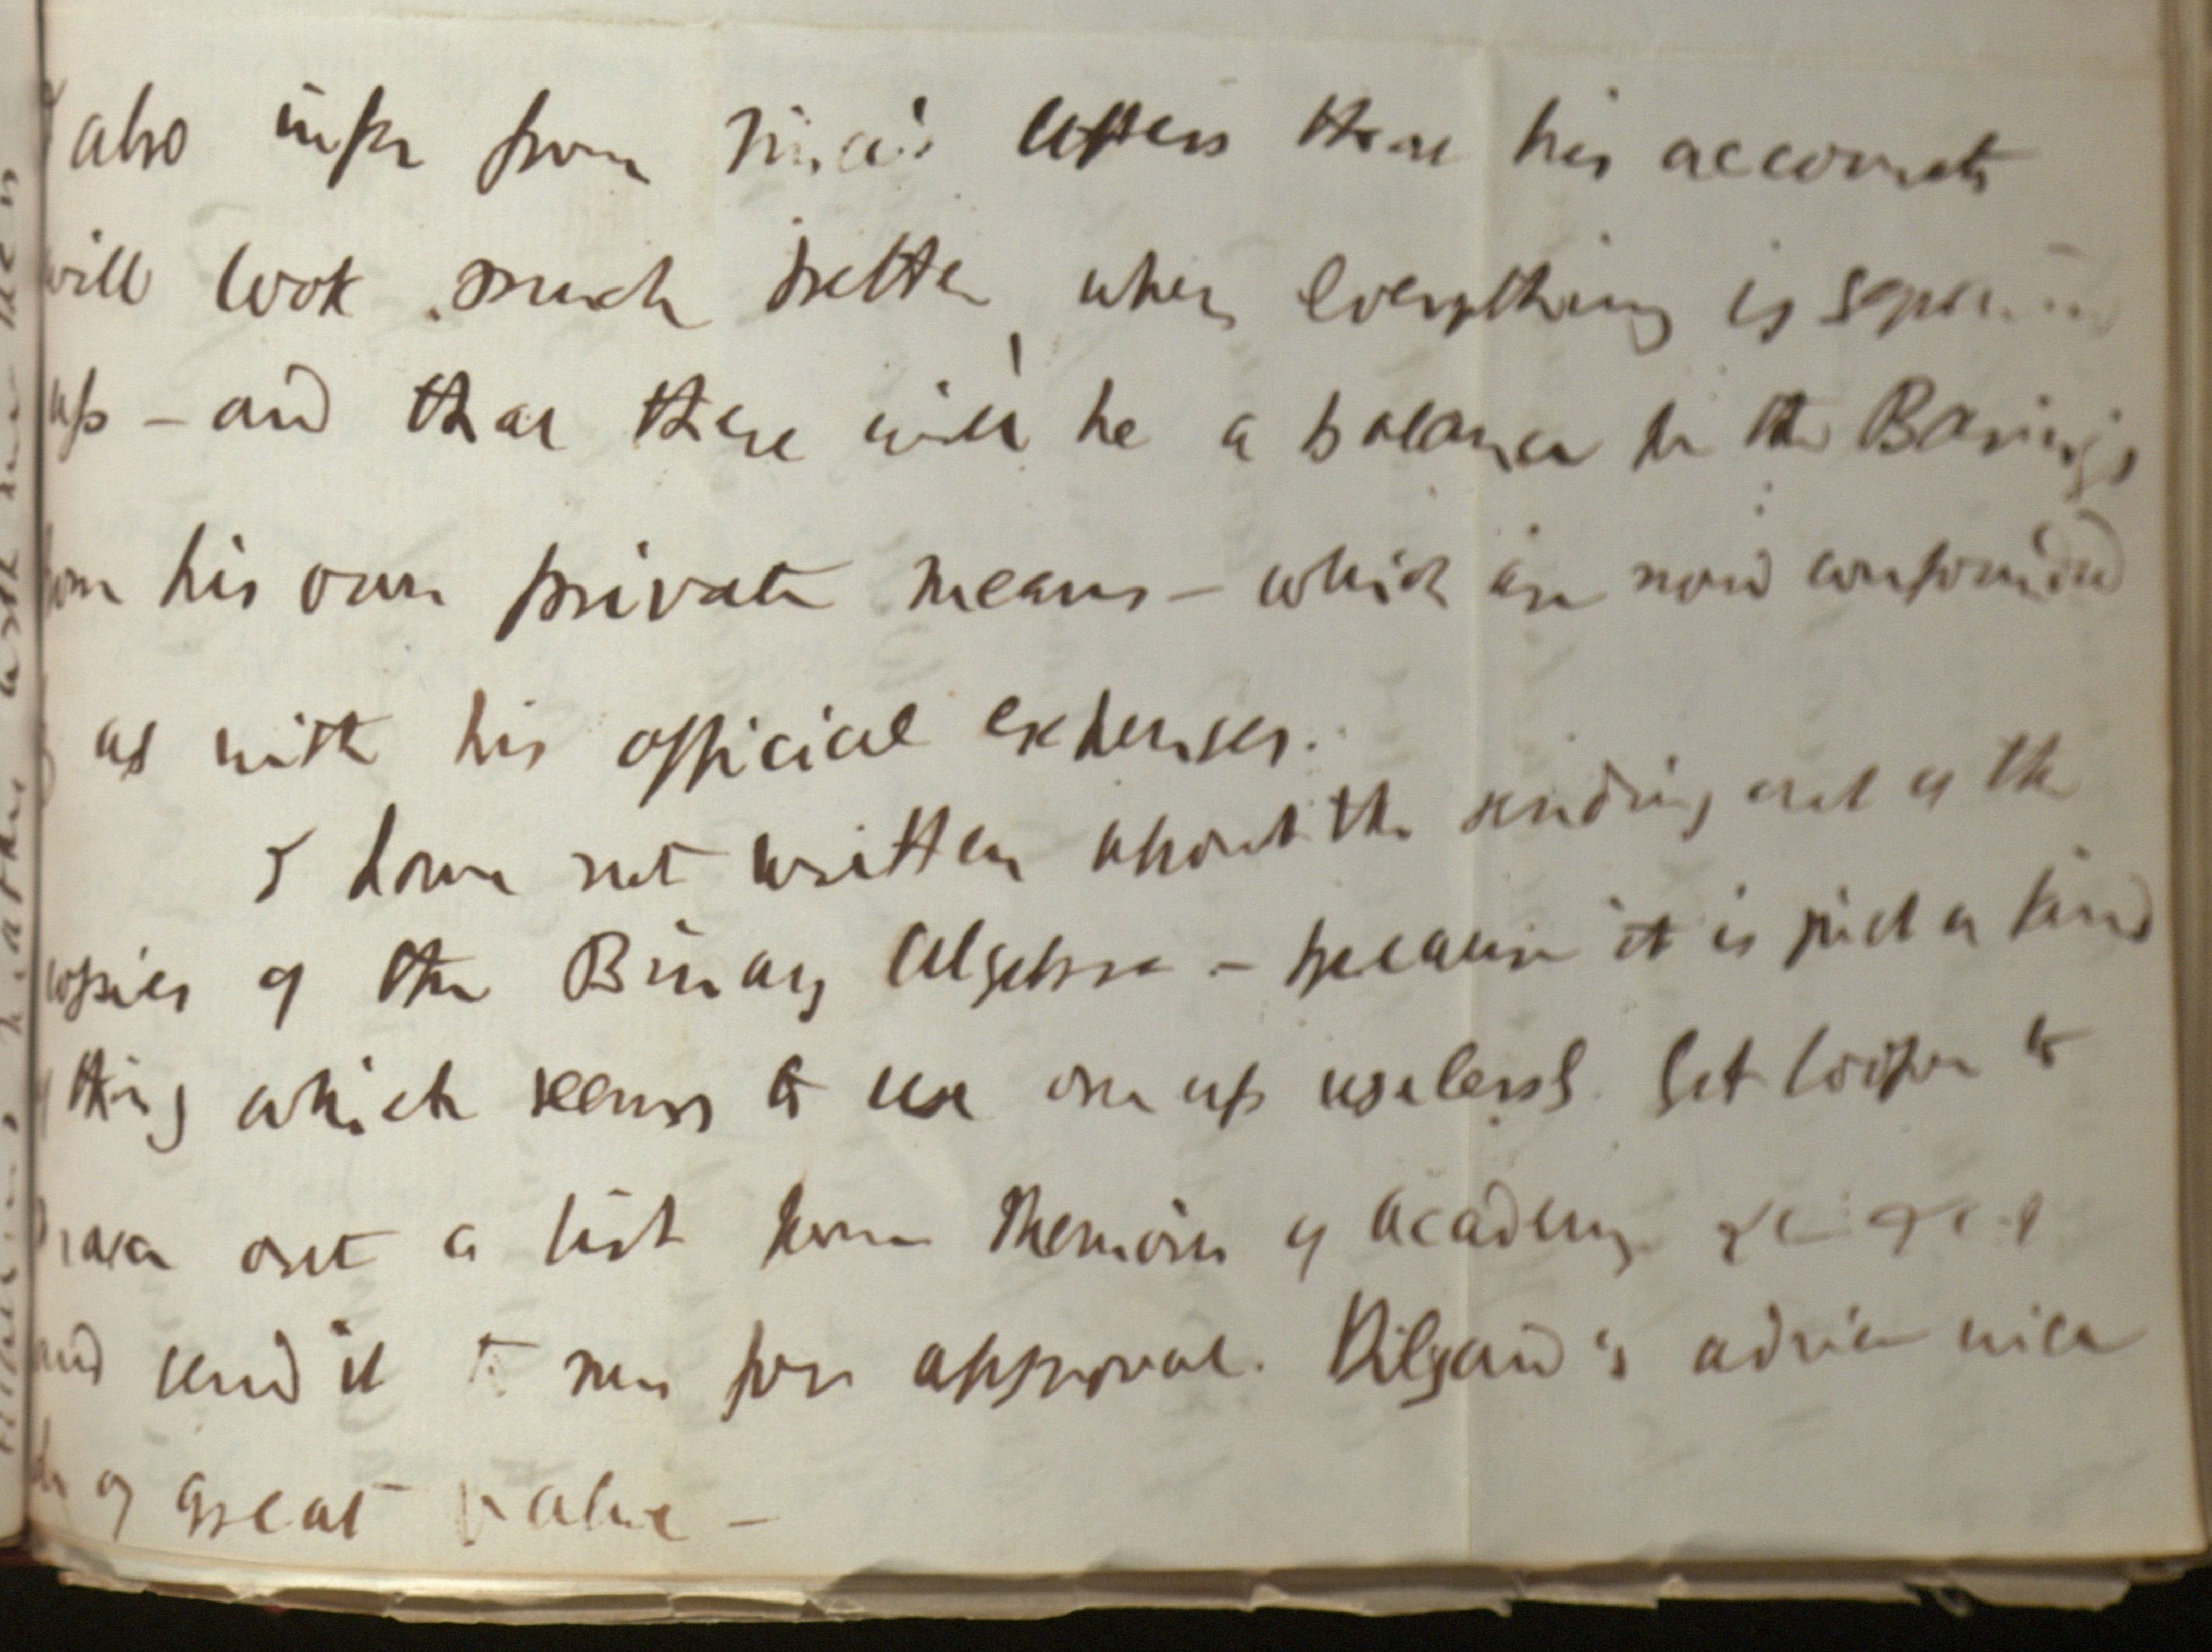 I also infer from Nina's letters that his accounts
will look much better when everything is
up – and that there will be a balance in the Barings
from his own private means – which are now confounded
as with his official expenses.
I have not written about the sending out of the
copies of the Binary Algebra – because it is just a kind
of thing which seems to use one up uselessly. Get to
draw out a list from Memoirs of Academy
and send it to me for approval. advice will
be of great value –